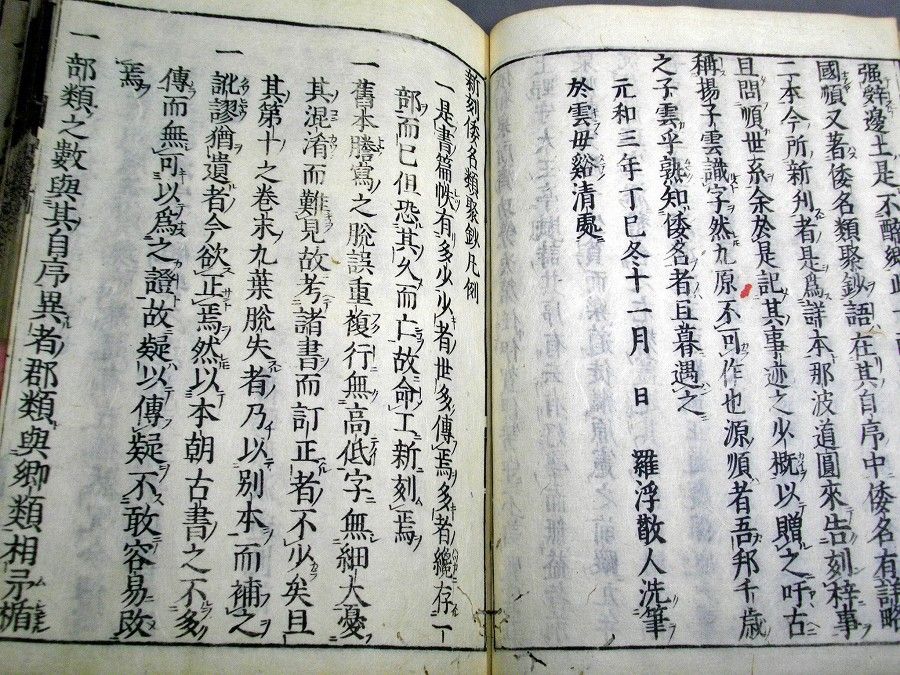 强辭邊土是不醉鄉此
國順又著倭名類聚鈔語在其自序中倭名有詳略
二本今所新刊者是爲詳本那波道圓來告刻梓事
且問順世系余於是記其事迹之少概以贈之吁古
稱揚子雲識字然九原不可作也源順者吾邦千歲
之子雲乎孰知倭名者旦暮遇之
元和三年丁巳冬十一月 日 羅浮散人洗筆
於雲母谿清處
新刻倭名類聚鈔凡例
一是書篇帙有多少少者世多傳焉多者纔存一
部而已但恐其久而亡故命工新刻焉
一舊本謄寫之脫誤重複行無高低字無細大憂
其混淆而難見故考諸書而訂正者不少矣且
其第十之卷末九葉脫失者乃以別本而補之
一訛謬猶遺者今欲正焉然以本朝古書之不多
傳而無可以爲之證故疑以傳疑不敢容易改
焉
一部類之數與其自序異者郡類與鄉類相示楯